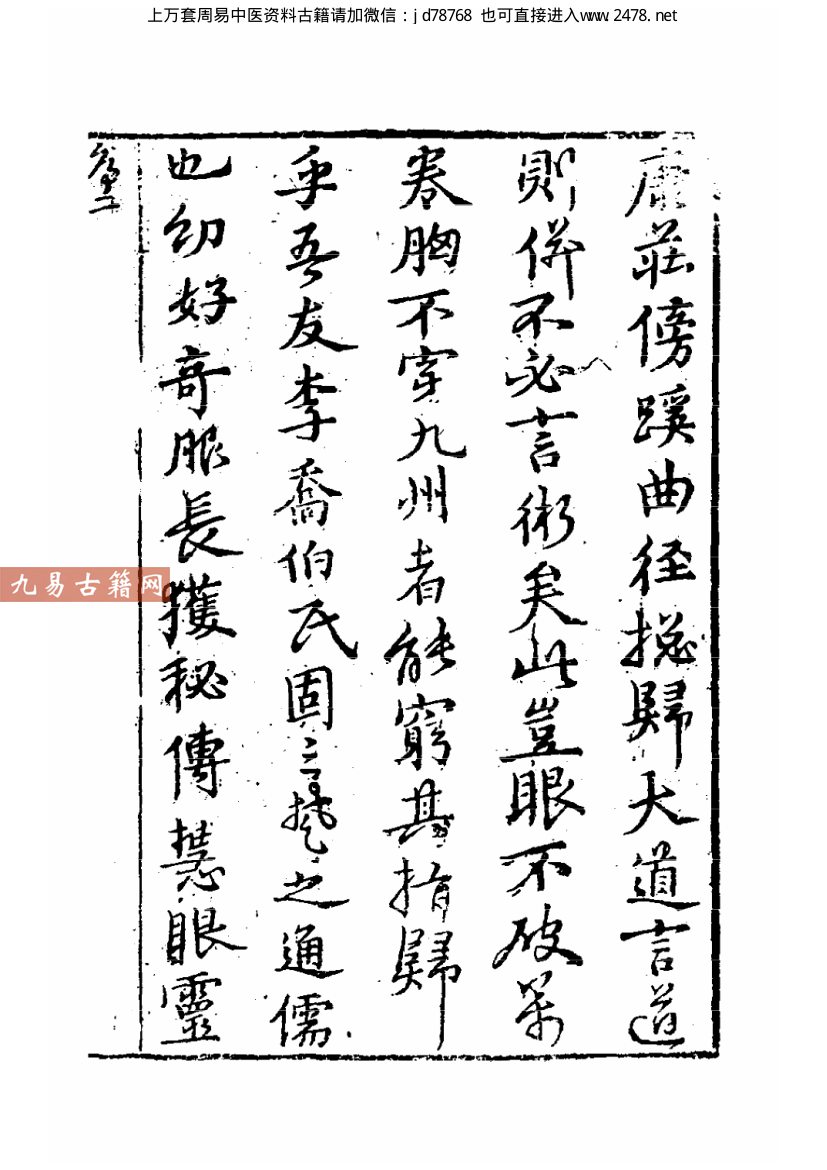 上万套周易中医资料古籍请加微信：jd78768 也可直接进入www.2478.net
康莊傍蹊曲径捴歸大道言道
則併不必言術矣此豈眼不破萬
卷胸不穿九州者能窮其指歸
乎吾友李喬伯氏固三楚之通儒
也幼好奇服長獲秘傳慧眼靈
序二
九易古籍网